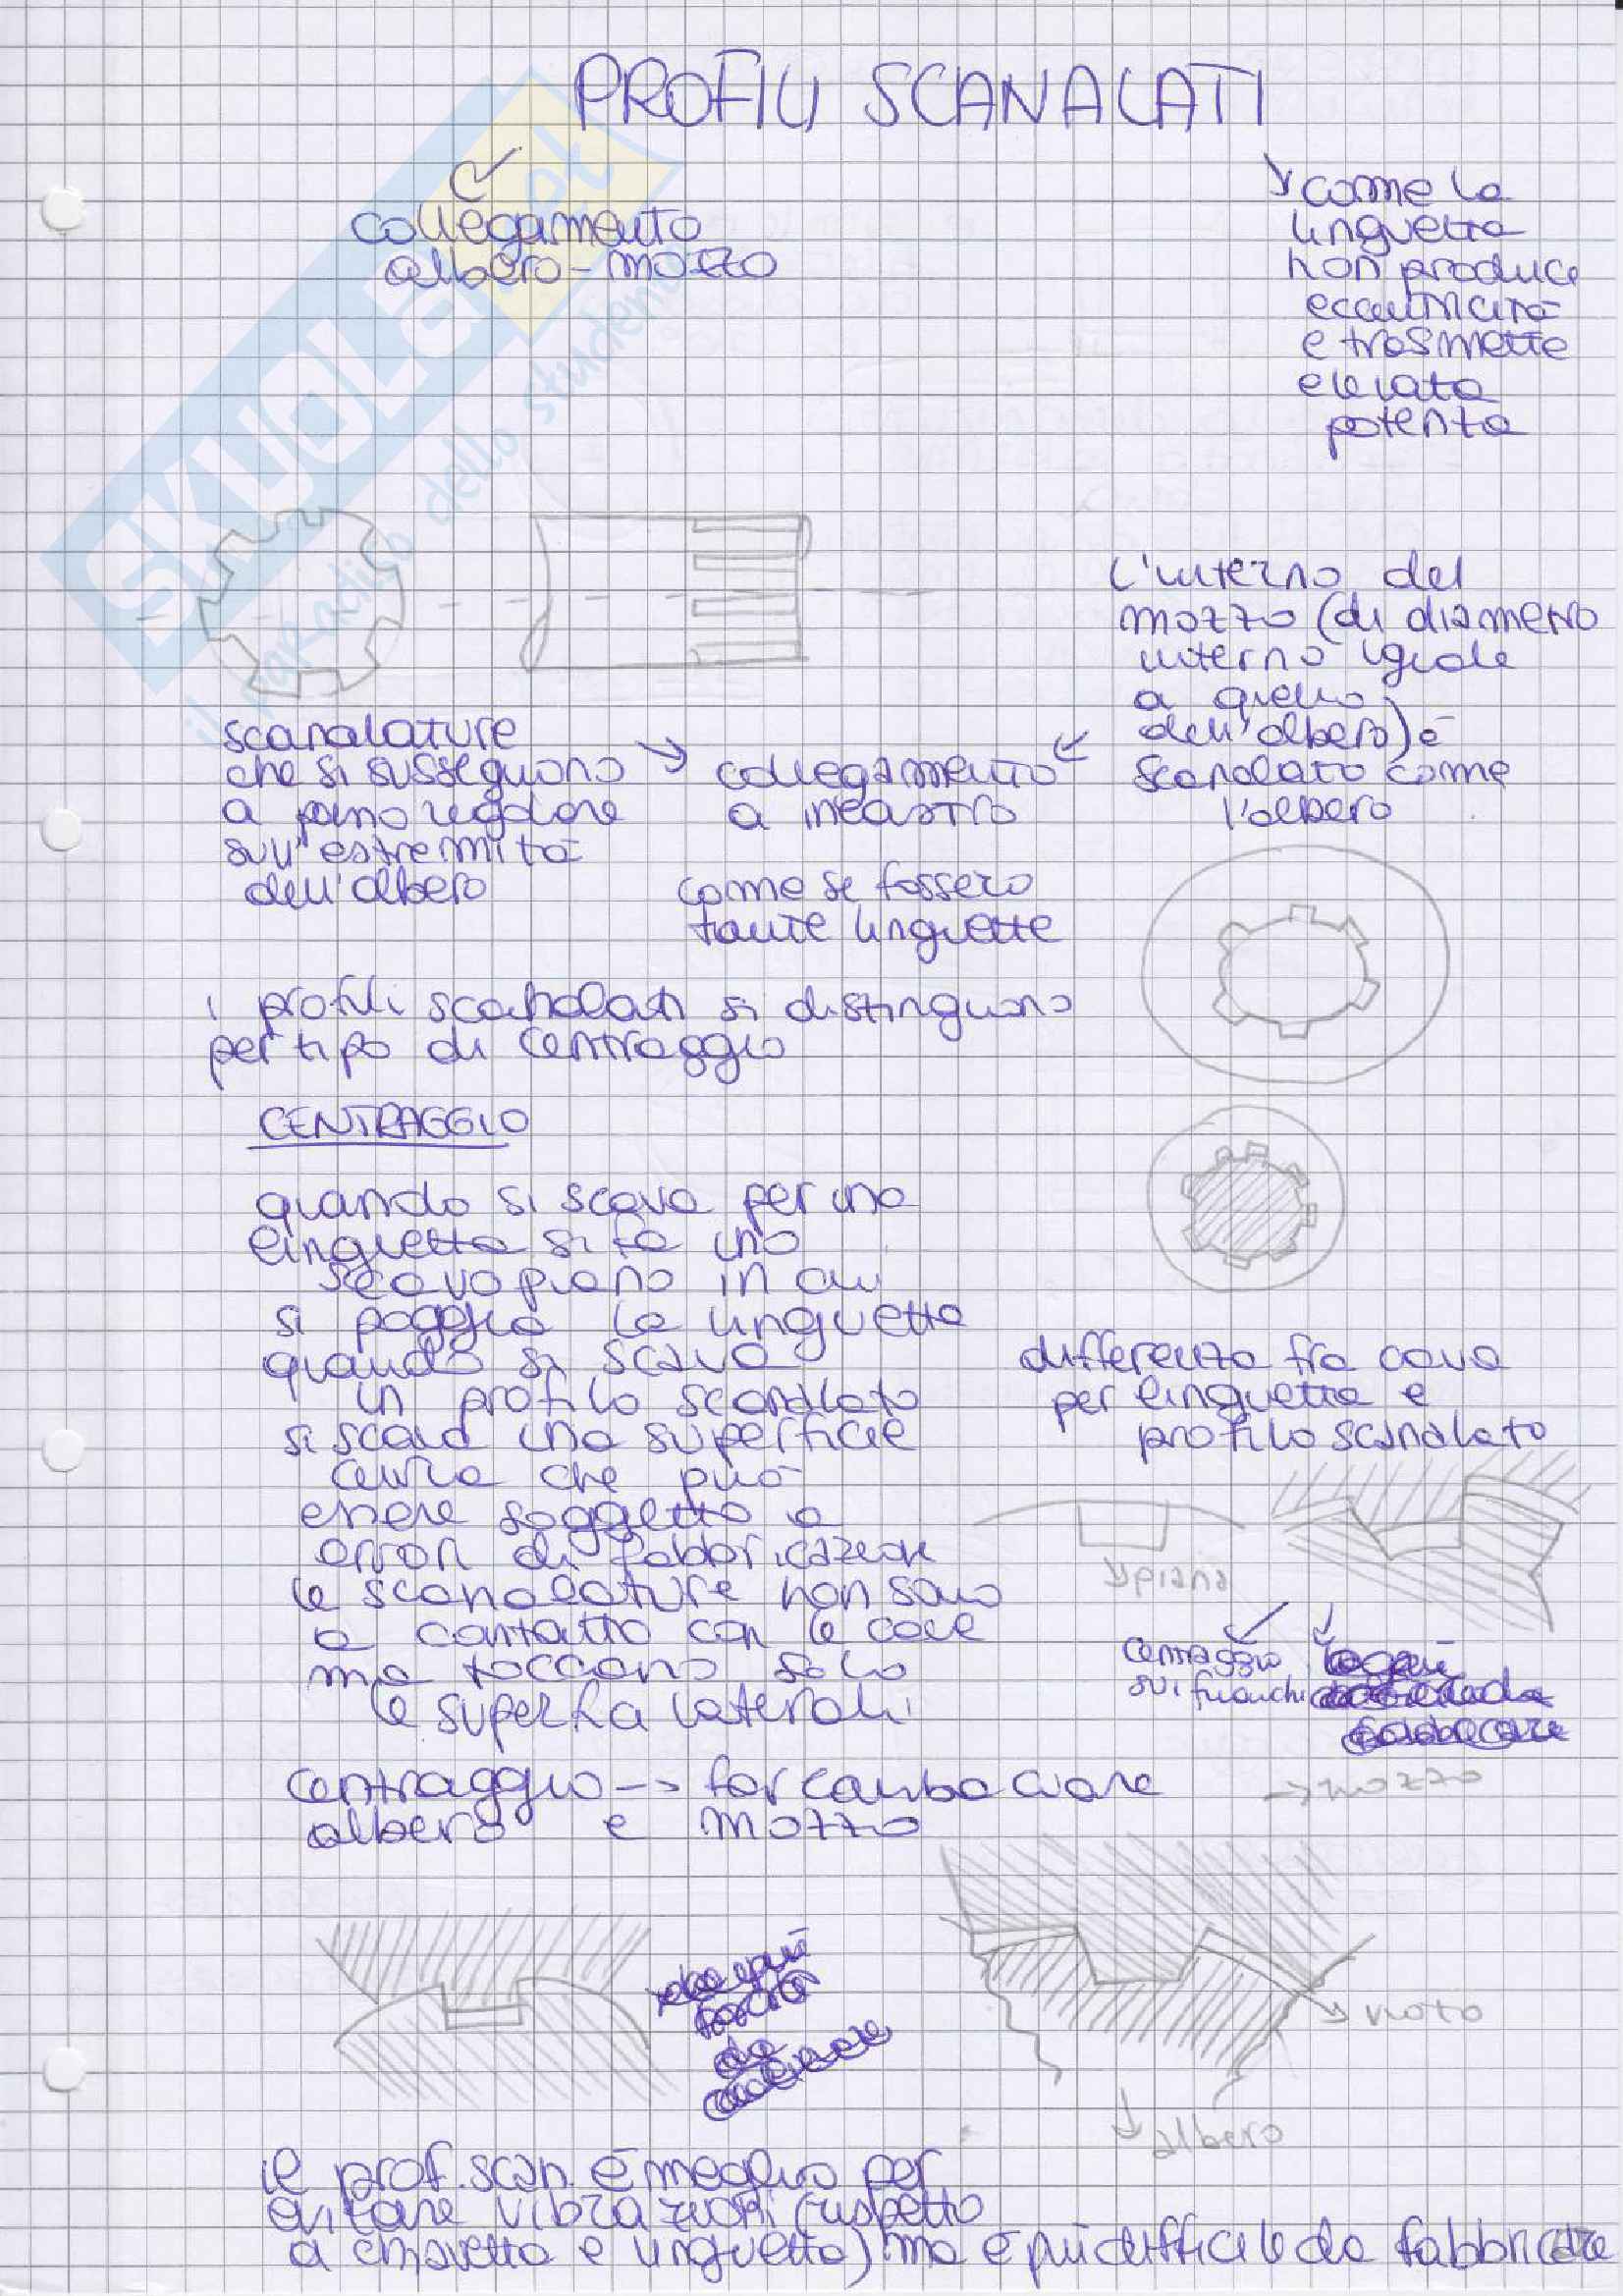 PROFILI SCANALATI
collegamento
albero-mozzo
come la
linguetta
non produce
eccentricità
e trasmette
elevata
potenza
SKUOLA.net
il paradiso dello studente
l'interno del
mozzo (di diametro
interno uguale
a quello
dell'albero) è
scanalato come
l'albero
scanalature
che si susseguono
a passo regolare
sull'estremità
dell'albero
collegamento
a incastro
come se fossero
tante linguette
i profili scanalati si distinguono
per tipo di centraggio
CENTRAGGIO
quando si scava per una
linguetta si fa uno
scavo piano in cui
si poggia la linguetta
quando si scava
un profilo scanalato
si scava una superficie
curva che può
essere soggetto a
errori di fabbricazione
le scanalature non sono
a contatto con le cave
ma toccano solo
le superfici laterali
differenza fra cava
per linguetta e
profilo scanalato
piana
centraggio
sui fianchi
centraggio -> far combaciare
albero e mozzo
->mozzo
vuoto
albero
il prof. scan. è meglio per
evitare vibrazioni (rispetto
a chiavetta e linguetta) ma è più difficile da fabbricare